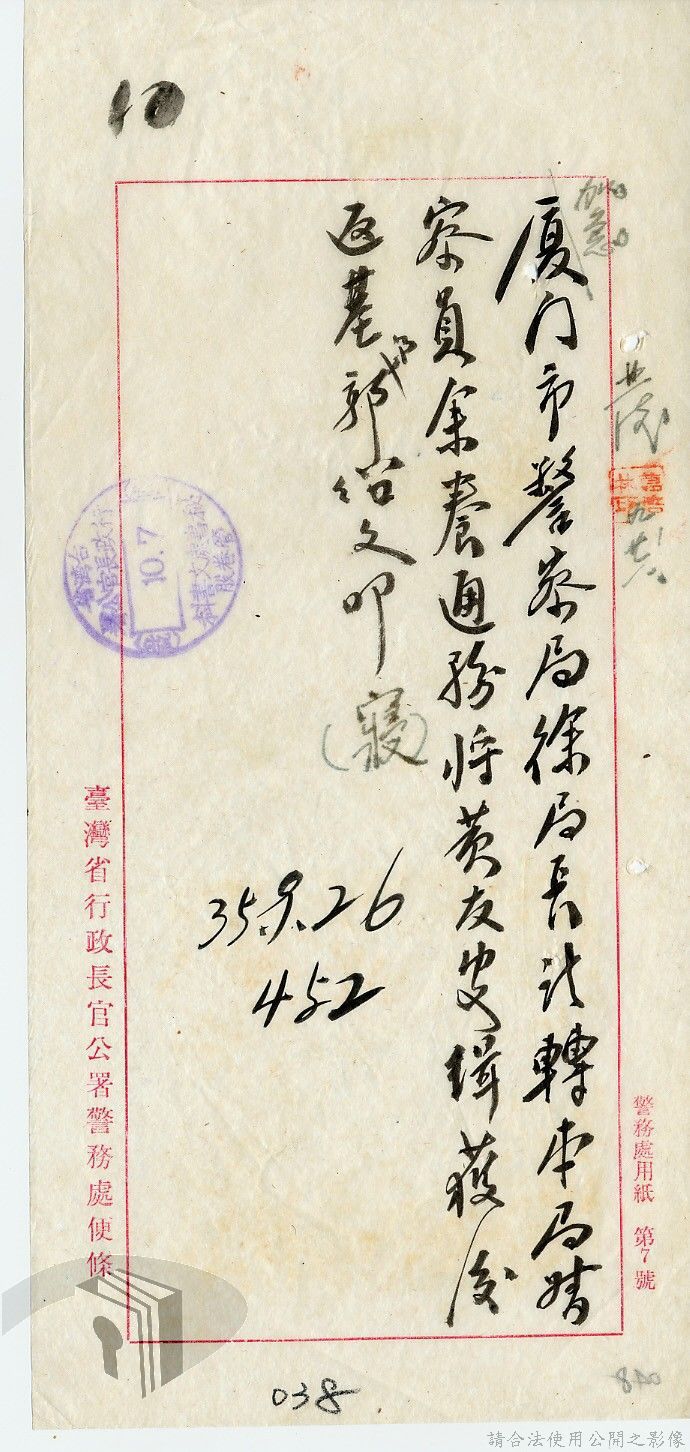 加急
廈门市警察局徐局長請轉本局督
察員余養通務将黄友安緝獲後
返基郭紹文叩
(寢)
35.9.26
452
10.7
臺灣省行政長官公署警務處便條
警務處用紙 第7號
038
請合法使用公開之影像